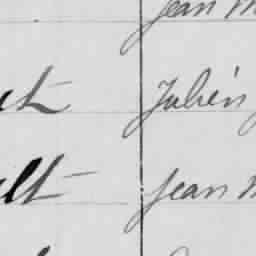 Jean M
et Julien J
ult Jean M